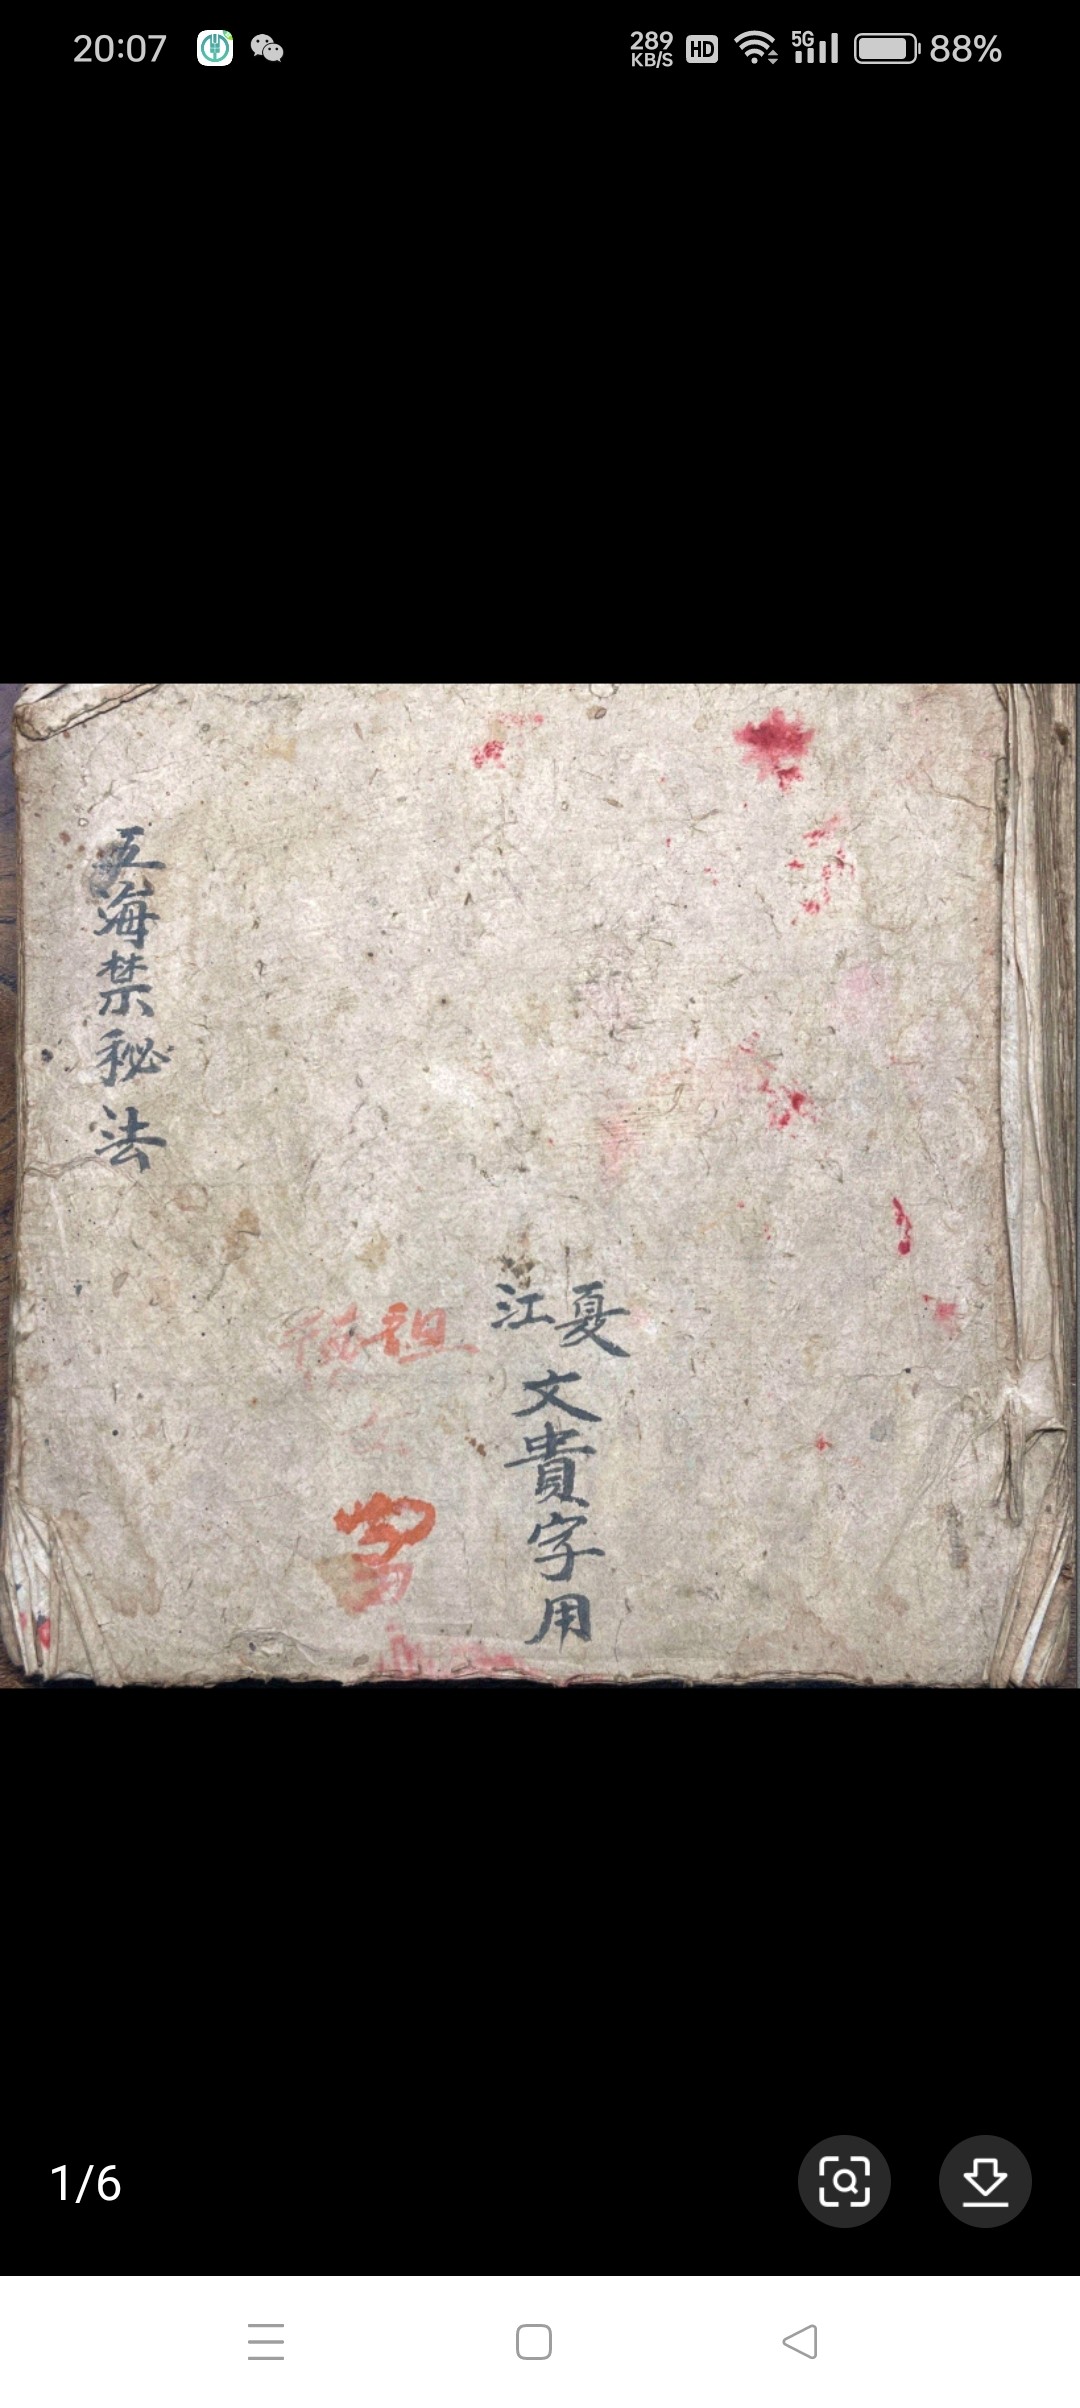 20:07
289 KB/S HD 5G 88%
五海禁秘法
江夏
文貴字用
1/6